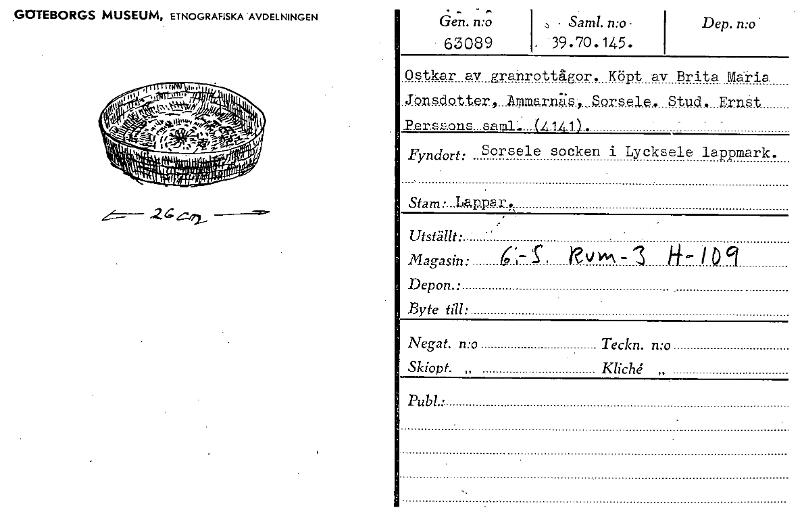 GÖTEBORGS MUSEUM, ETNOGRAFISKA AVDELNINGEN
← 26 cm →
Gen. n:o Saml. n:o Dep. n:o
63089 39.70.145.
Ostkar av granrottågor. Köpt av Brita Maria
Jonsdotter, Ammarnäs, Sorsele. Stud. Ernst
Perssons saml. (4141).
Fyndort: Sorsele socken i Lycksele lappmark.
Stam: Lappar.
Utställt:
Magasin: 6-S. Rum-3 H-109
Depon.:
Byte till:
Negat. n:o Teckn. n:o
Skiopt. „ Kliché „
Publ.: